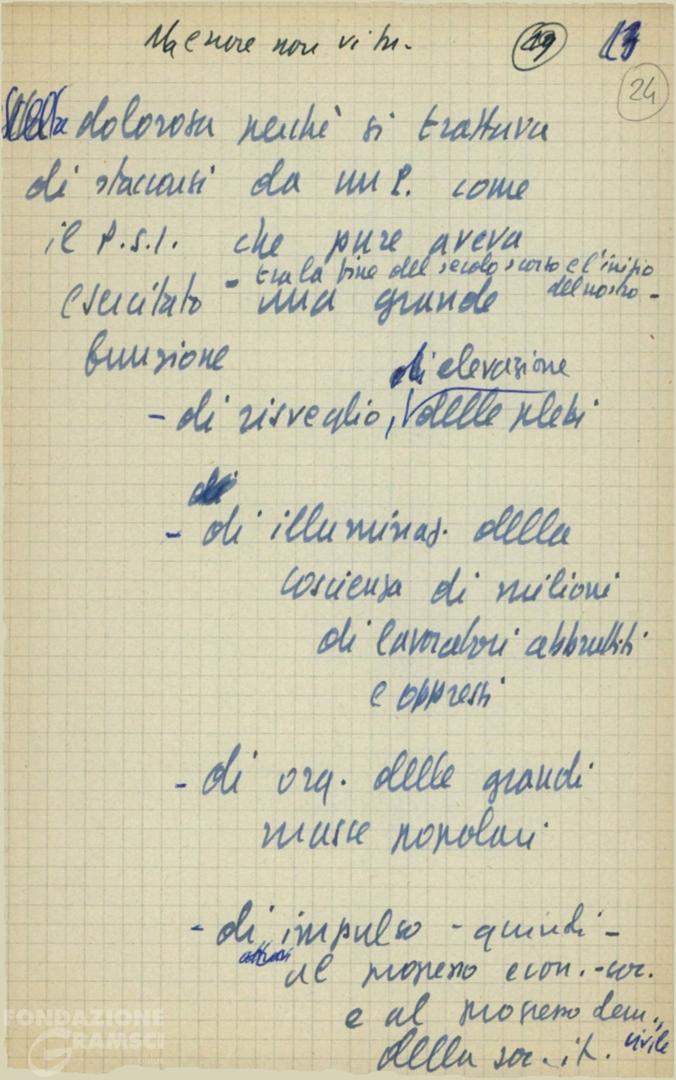 non
19 13
24
dolorosa perchè si trattava
di staccarsi da un P. come
il P.S.I. che pure aveva
- tra la fine del secolo scorso e l'inizio
del nostro -
esercitato una grande
funzione
di elevazione
- di risveglio, delle plebi
di
- di illuminaz. della
coscienza di milioni
di lavoratori abbrutiti
e oppressi
- di org. delle grandi
masse popolari
- di impulso - quindi -
al progresso econ.-soc.
e al progresso dem.,
civile
della soc. it.
FONDAZIONE
GRAMSCI